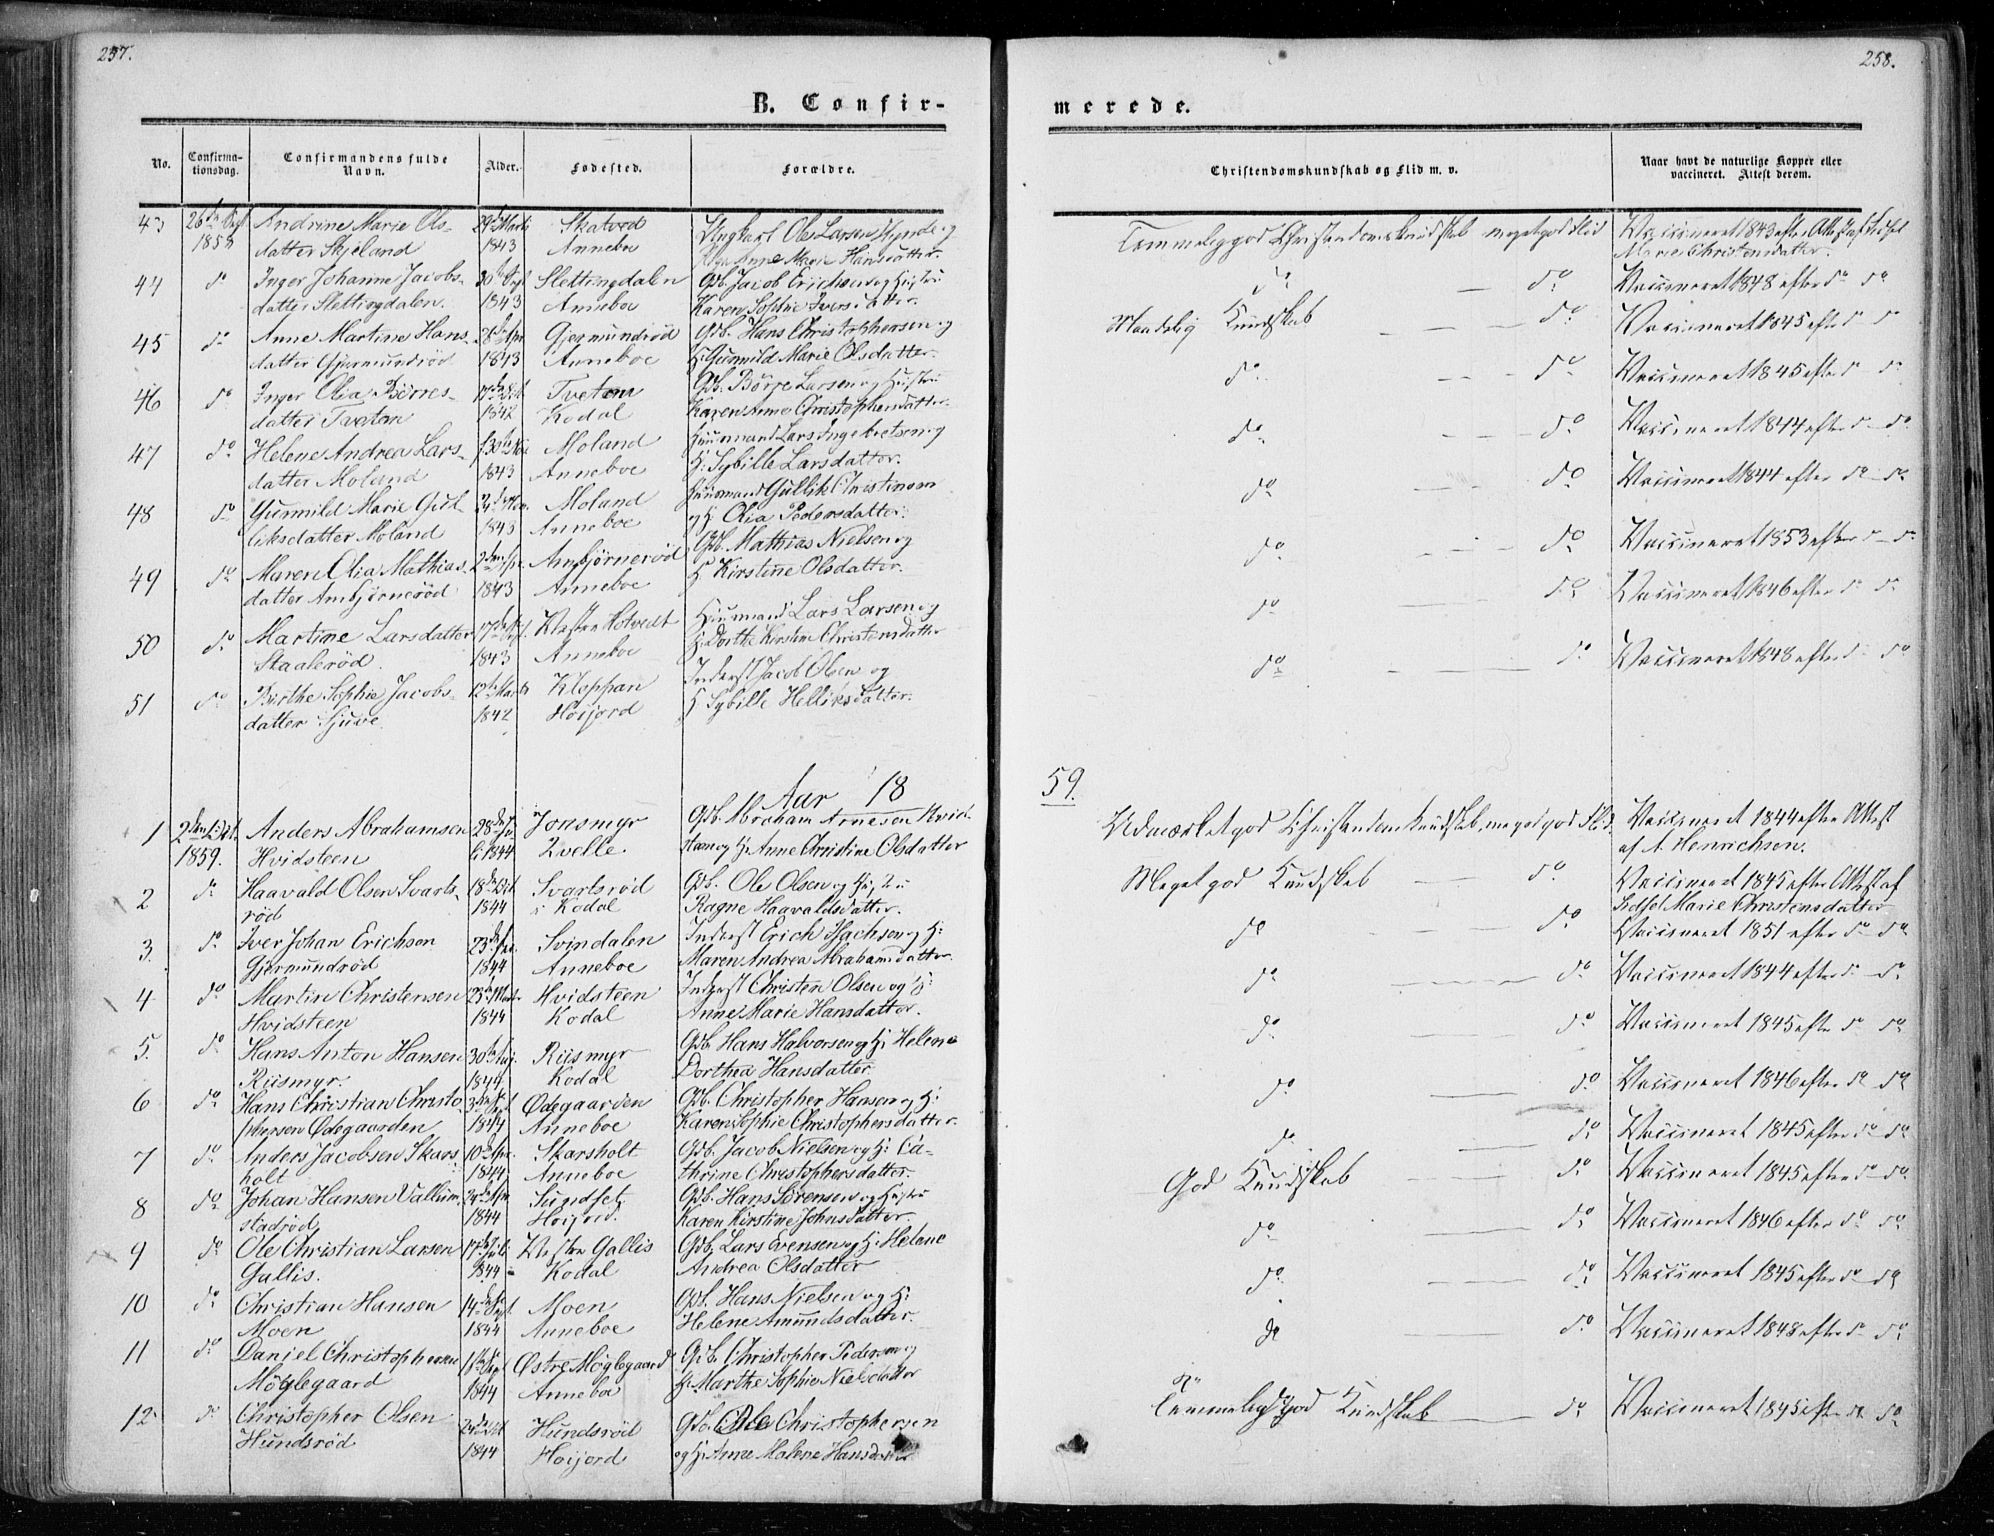 257.
B. Confir-
No.
Confirma-
tionsdag.
Confirmandens fulde
Navn.
Alder.
Fødested.
Forældre.
43
1858
Andrine Marie Ols-
datter Skjeland
1843
Skatved
Anneboe
Ungkarl Ole Larsen
Pige Anne Marie Hansdatter.
44
do
Inger Johanne Jacobs-
datter Slettingdalen.
1843
Slettingdalen
Anneboe
Gdb. Jacob Erichsen og Hustru
Karen Sophie Iversdatter
45
do
Anne Martine Hans
datter Gjermundrød
1843
Gjermundrød
Anneboe
Gdb. Hans Christophersen og
H. Gunnild Marie Olsdatter.
46
do
Inger Olia Børres-
datter Tveten
1842
Tveten
Kodal
Gdb. Børge Larsen og Hustru
Karen Anne Christophersdatter
47
do
Helene Andrea Lars-
datter Moland
1843
Moland
Anneboe
Huusmand Lars Ingebretsen og
H: Sybille Larsdatter.
48
do
Gunnild Marie Gul-
liksdatter Moland
1843
Moland
Anneboe
Huusmand Gullik Christensen
og H. Olia Pedersdatter.
49
do
Maren Olia Mathias-
datter Ambjørnerød
1843
Ambjørnerød
Anneboe
Gdb. Mathias Nielsen og
H Kirstine Olsdatter.
50
do
Martine Larsdatter
Staalerød.
1843
Vestre Hotvedt
Anneboe
Huusmand Lars Larsen og
H: Dorthe Kirstine Christensdatter
51
do
Birthe Sophie Jacobs-
datter Sjuve.
1842
Kloppan
Høijord
Inderst Jacob Olsen og
H Sybille Helliksdatter.
Aar 18
1
2den Oct.
1859.
Anders Abrahamsen
Hvidsteen
1844
Jonsmyr
Qvelle.
Gdb. Abraham Arnesen Hvid-
steen og H. Anne Christine Olsdatter
2
do
Haavald Olsen Svarts-
rød
1844
Svartsrød
i Kodal
Gdb. Ole Olsen og Hustru
Ragne Haavaldsdatter.
3.
do
Iver Johan Erichsen
Gjermundrød
1844
Svindalen
Anneboe
Inderst Erich Isachsen og H:
Maren Andrea Abrahamsdatter.
4
do
Martin Christensen
Hvidsteen
1844
Hvidsteen
Kodal
Inderst Christen Olsen og H:
Anne Marie Hansdatter.
5.
do
Hans Anton Hansen
Riismyr.
1844
Riismyr
Kodal
Gdb Hans Halvorsen og H: Helene
Dorthea Hansdatter
6
do
Hans Christian Christo
phersen Ødegaarden
1844
Ødegaarden
Anneboe
Gdb. Christopher Hansen og H:
Karen Sophie Christophersdatter.
7
do
Anders Jacobsen Skars
holt
1844
Skarsholt
Anneboe
Gdb. Jacob Nielsen og H: Ca-
thrine Christophersdatter
8
do
Johan Hansen Vallum
stadrød
1844
Sundset
Høijord.
Gdb. Hans Sørensen og Hustru
Karen Kirstine Johnsdatter.
9
do
Ole Christian Larsen
Gallis.
1844
Vestre Gallis
Kodal
Gdb. Lars Evensen og H: Helene
Andrea Olsdatter
10
do
Christian Hansen
Moen
1844
Moen
Anneboe
Gdb. Hans Nielsen og H:
Helene Amundsdatter.
11
do
Daniel Christophersen
Møglegaard
1844
Østre Møglegaard
Anneboe
Gdb Christopher Pedersen og
H: Marthe Sophie Nielsdatter
12
do
Christopher Olsen
Hundsrød
1844
Hundsrød
Høijord
Gdb. Ole Christophersen
og H. Anne Malene Hansdatter
258.
merede.
Christendomskundskab og Flid m. v.
Naar havt de naturlige Kopper eller
vaccineret. Attest derom.
Temmelig god Christendomskundskab meget god Flid
Vaccineret 1843 efter Attest af Frøk
Marie Christensdatter.
do
do
Vaccineret 1848 efter do do
Maadelig Kundskab
do
Vaccineret 1845 efter do do
do
do
Vaccineret 1845 efter do do
do
do
Vaccineret 1844 efter do do
do
do
Vaccineret 1844 efter do do
do
do
Vaccineret 1853 efter do do
do
do
Vaccineret 1846 efter do do
do
do
Vaccineret 1848 efter do do
59.
Udmærket god Christendomskundskab, meget god Flid.
Vaccineret 1844 efter Attest
af A. Henrichsen.
Meget god Kundskab
do
Vaccineret 1845 efter Attest af
Marie Christensdatter
do
do
Vaccineret 1851 efter do do
do
do
Vaccineret 1844 efter do do
do
do
Vaccineret 1845 efter do do
do
do
Vaccineret 1846 efter do do
do
do
Vaccineret 1845 efter do do
God Kundskab
do
Vaccineret 1845 efter do do
do
do
Vaccineret 1846 efter do do
do
do
Vaccineret 1845 efter do do
do
do
Vaccineret 1848 efter do do
do
Temmelig god Kundskab
do
Vaccineret 1845 efter do do